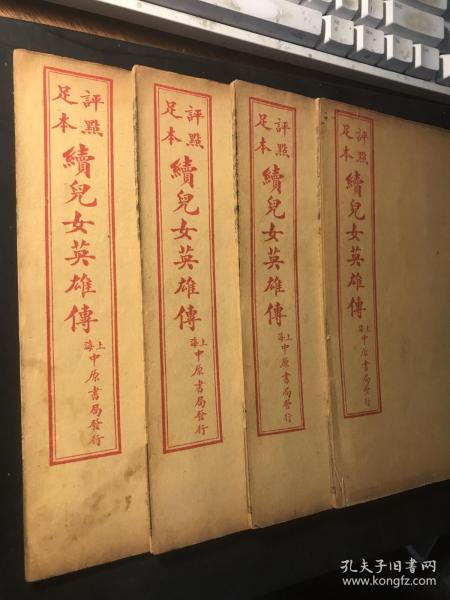 評點
足本
續兒女英雄傳
上海
中原書局發行
評點
足本
續兒女英雄傳
上海
中原書局發行
評點
足本
續兒女英雄傳
上海
中原書局發行
評點
足本
續兒女英雄傳
上海
中原書局發行
孔夫子旧书网
www.kongfz.com